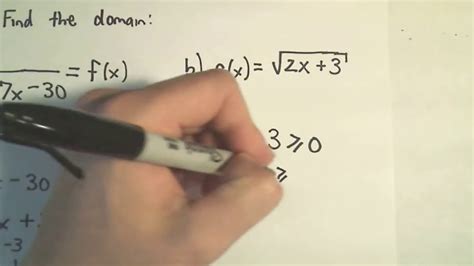 Find the domain:
7x-30 = f(x)
b) g(x) = √2x+3
3 ≥ 0
≥
- 30
x +
-3